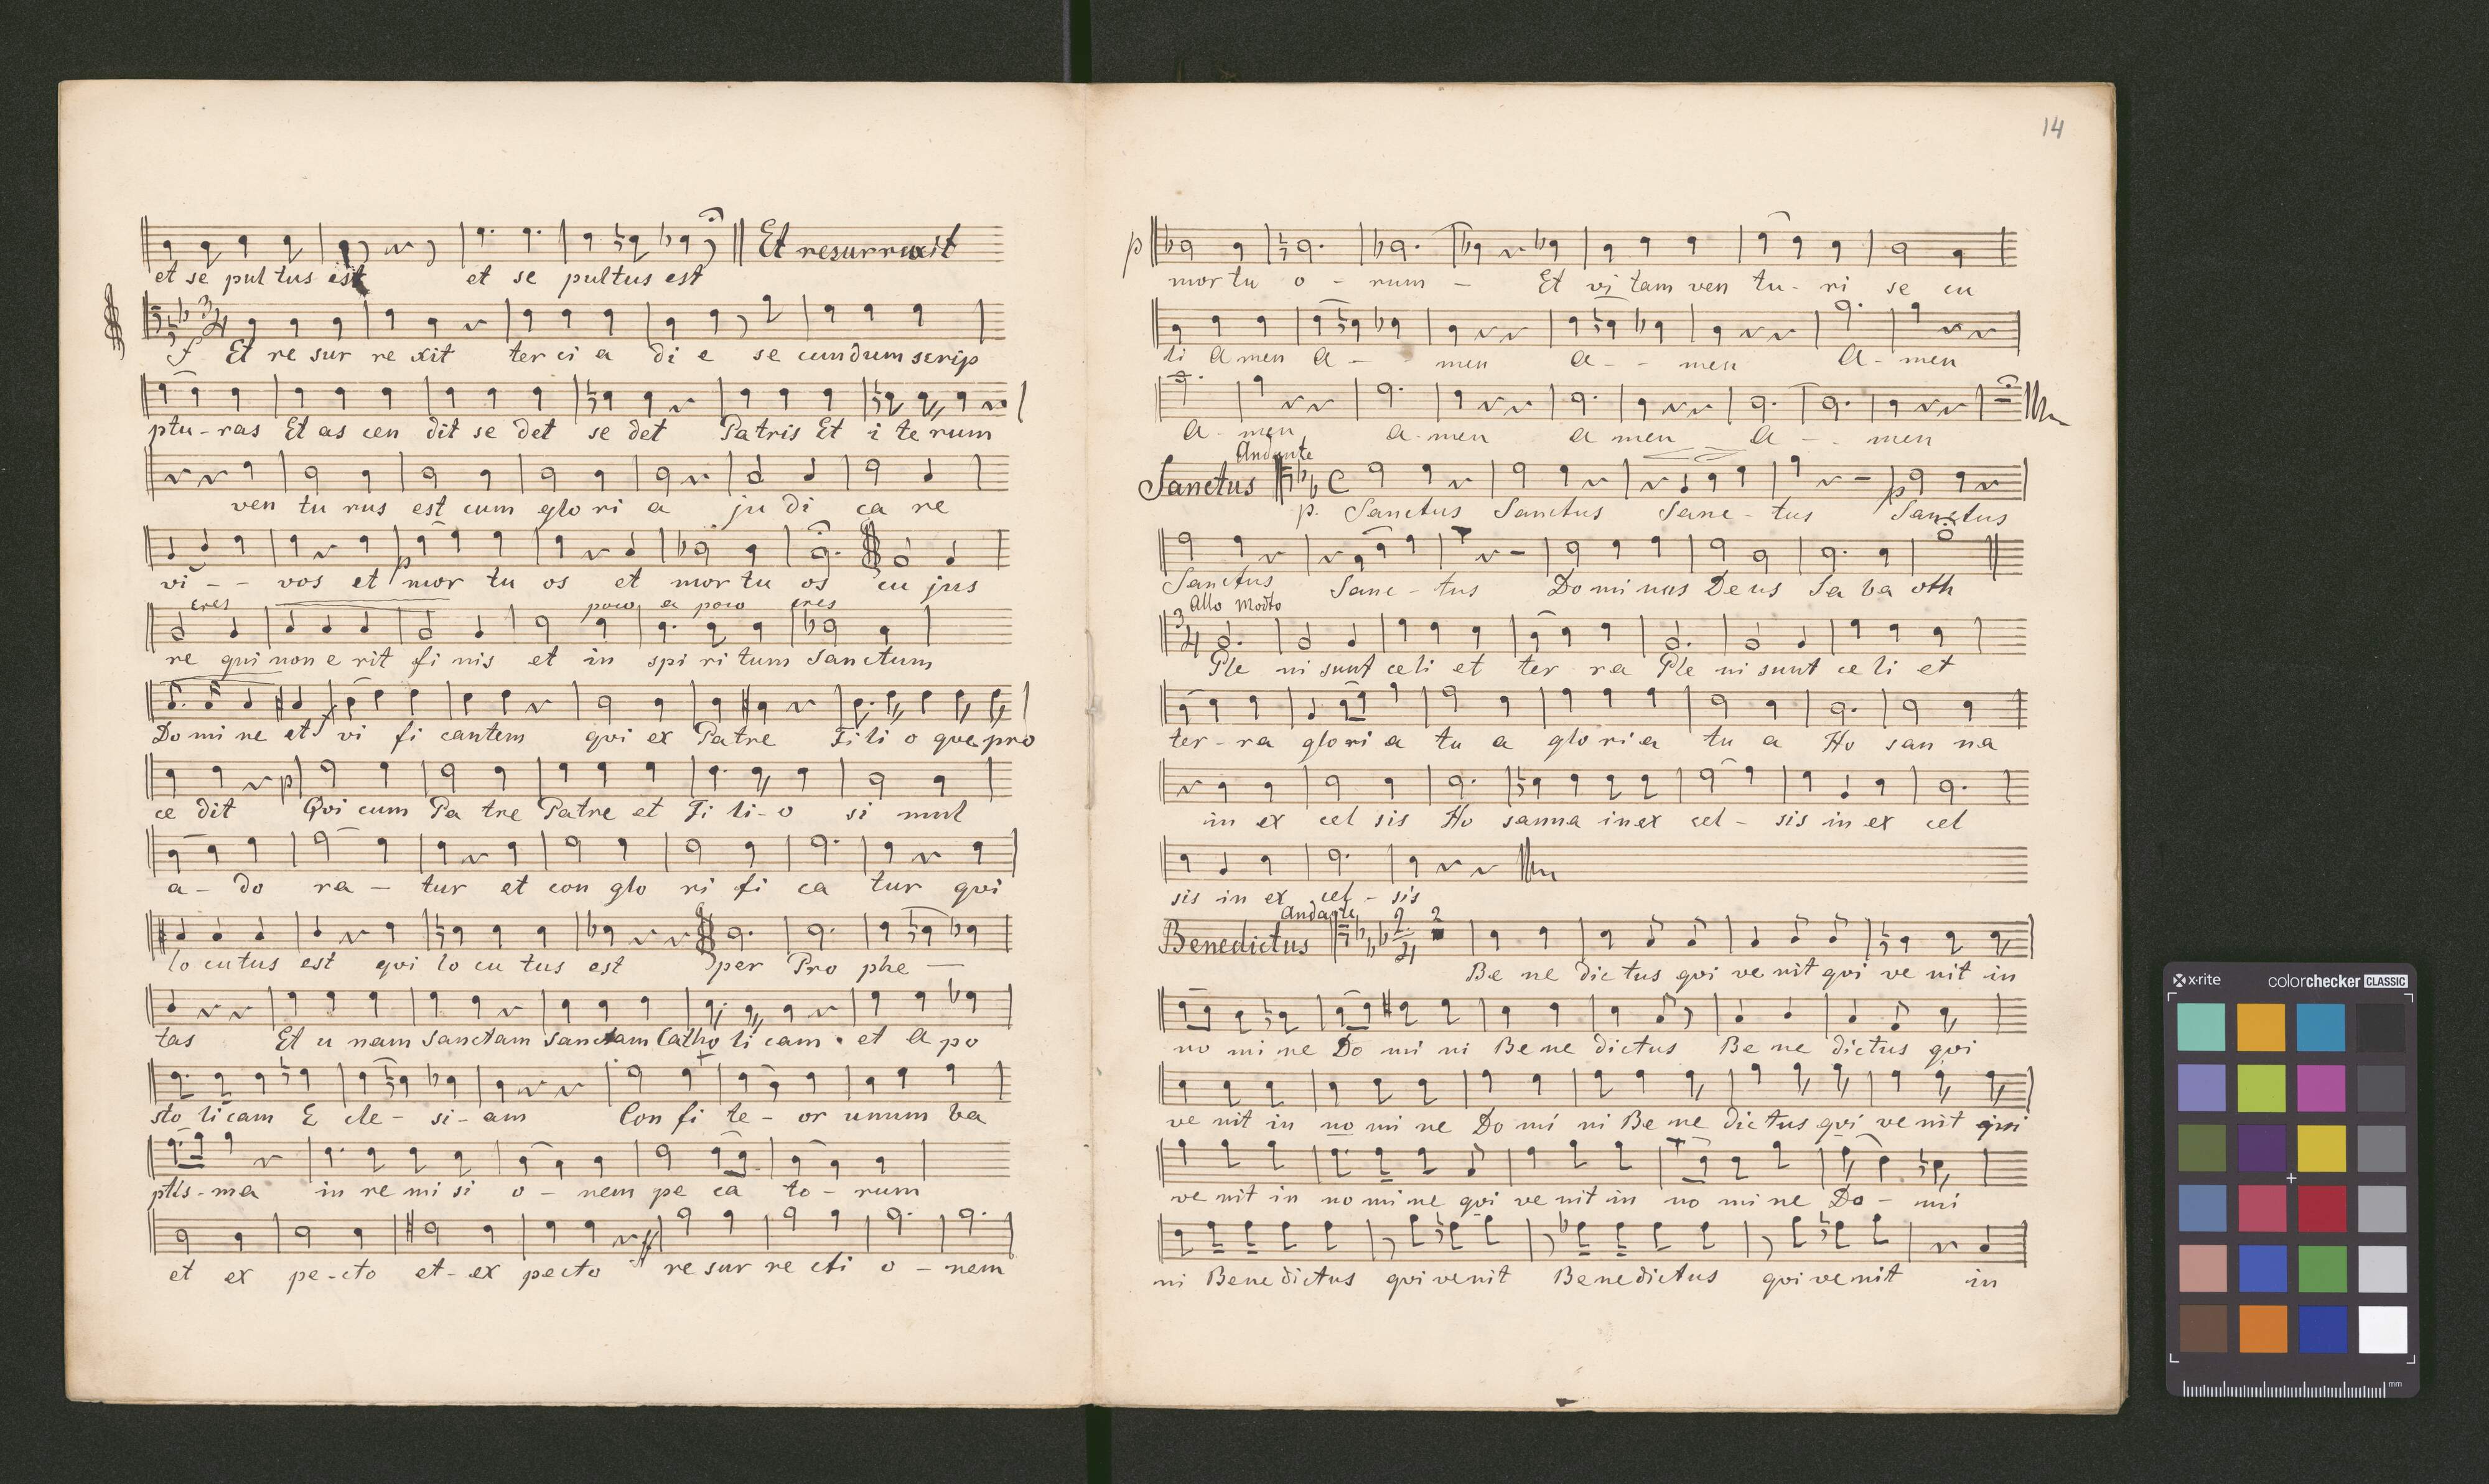 et se pul tus est et se pultus est Et resurrexit
f Et re sur re xit ter ci a di e se cundum scrip
ptu - ras Et as cen dit se det se det Patris Et i te rum
ven tu rus est cum glo ri a ju di ca re
p
vi - - vos et mor tu os et mor tu os cu jus
cres poco a poco cres
re qui non e rit fi nis et in spi ri tum Sanctum
Do mi ne et f vi fi cantem qvi ex Patre Fi li o que pro
p
ce dit Qvi cum Pa tre Patre et Fi li - o si mul
a - do ra - tur et con glo ri fi ca tur qvi
lo cutus est qvi lo cu tus est per Pro phe -
tas Et u nam sanctam sanctam Catho li cam et A po
sto licam E cle - si - am Con fi te - or unum ba
ptis - ma in re mi si o - nem pe ca to - rum
ff
et ex pe - cto et - ex pecto re sur re cti o - nem
14
p
mor tu o - rum - Et vi tam ven tu - ri se cu
li Amen A - - men a - - men A - men
A - men a - men a men A - - men
Andante
Sanctus C
p. Sanctus Sanctus Sanc - tus p Sanctus
Sanctus Sanc - tus Do mi nus Deus Sa ba oth
Allo Modto
3 4
Ple ni sunt celi et ter ra Ple ni sunt ce li et
ter - ra glo ri a tu a glo ri a tu a Ho san na
in ex cel sis Ho sanna in ex cel - sis in ex cel
sis in ex cel - sis
Andante
Benedictus 2 4 2
Be ne dic tus qvi ve nit qvi ve nit in
no mi ne Do mi ni Be ne dictus Be ne dictus qvi
ve nit in no mi ne Do mi ni Be ne dic tus qvi ve nit qvi
ve nit in no mi ne qvi ve nit in no mi ne Do - mi
ni Bene dictus qvi venit Benedictus qvi ve nit in
x-rite colorchecker CLASSIC
mm